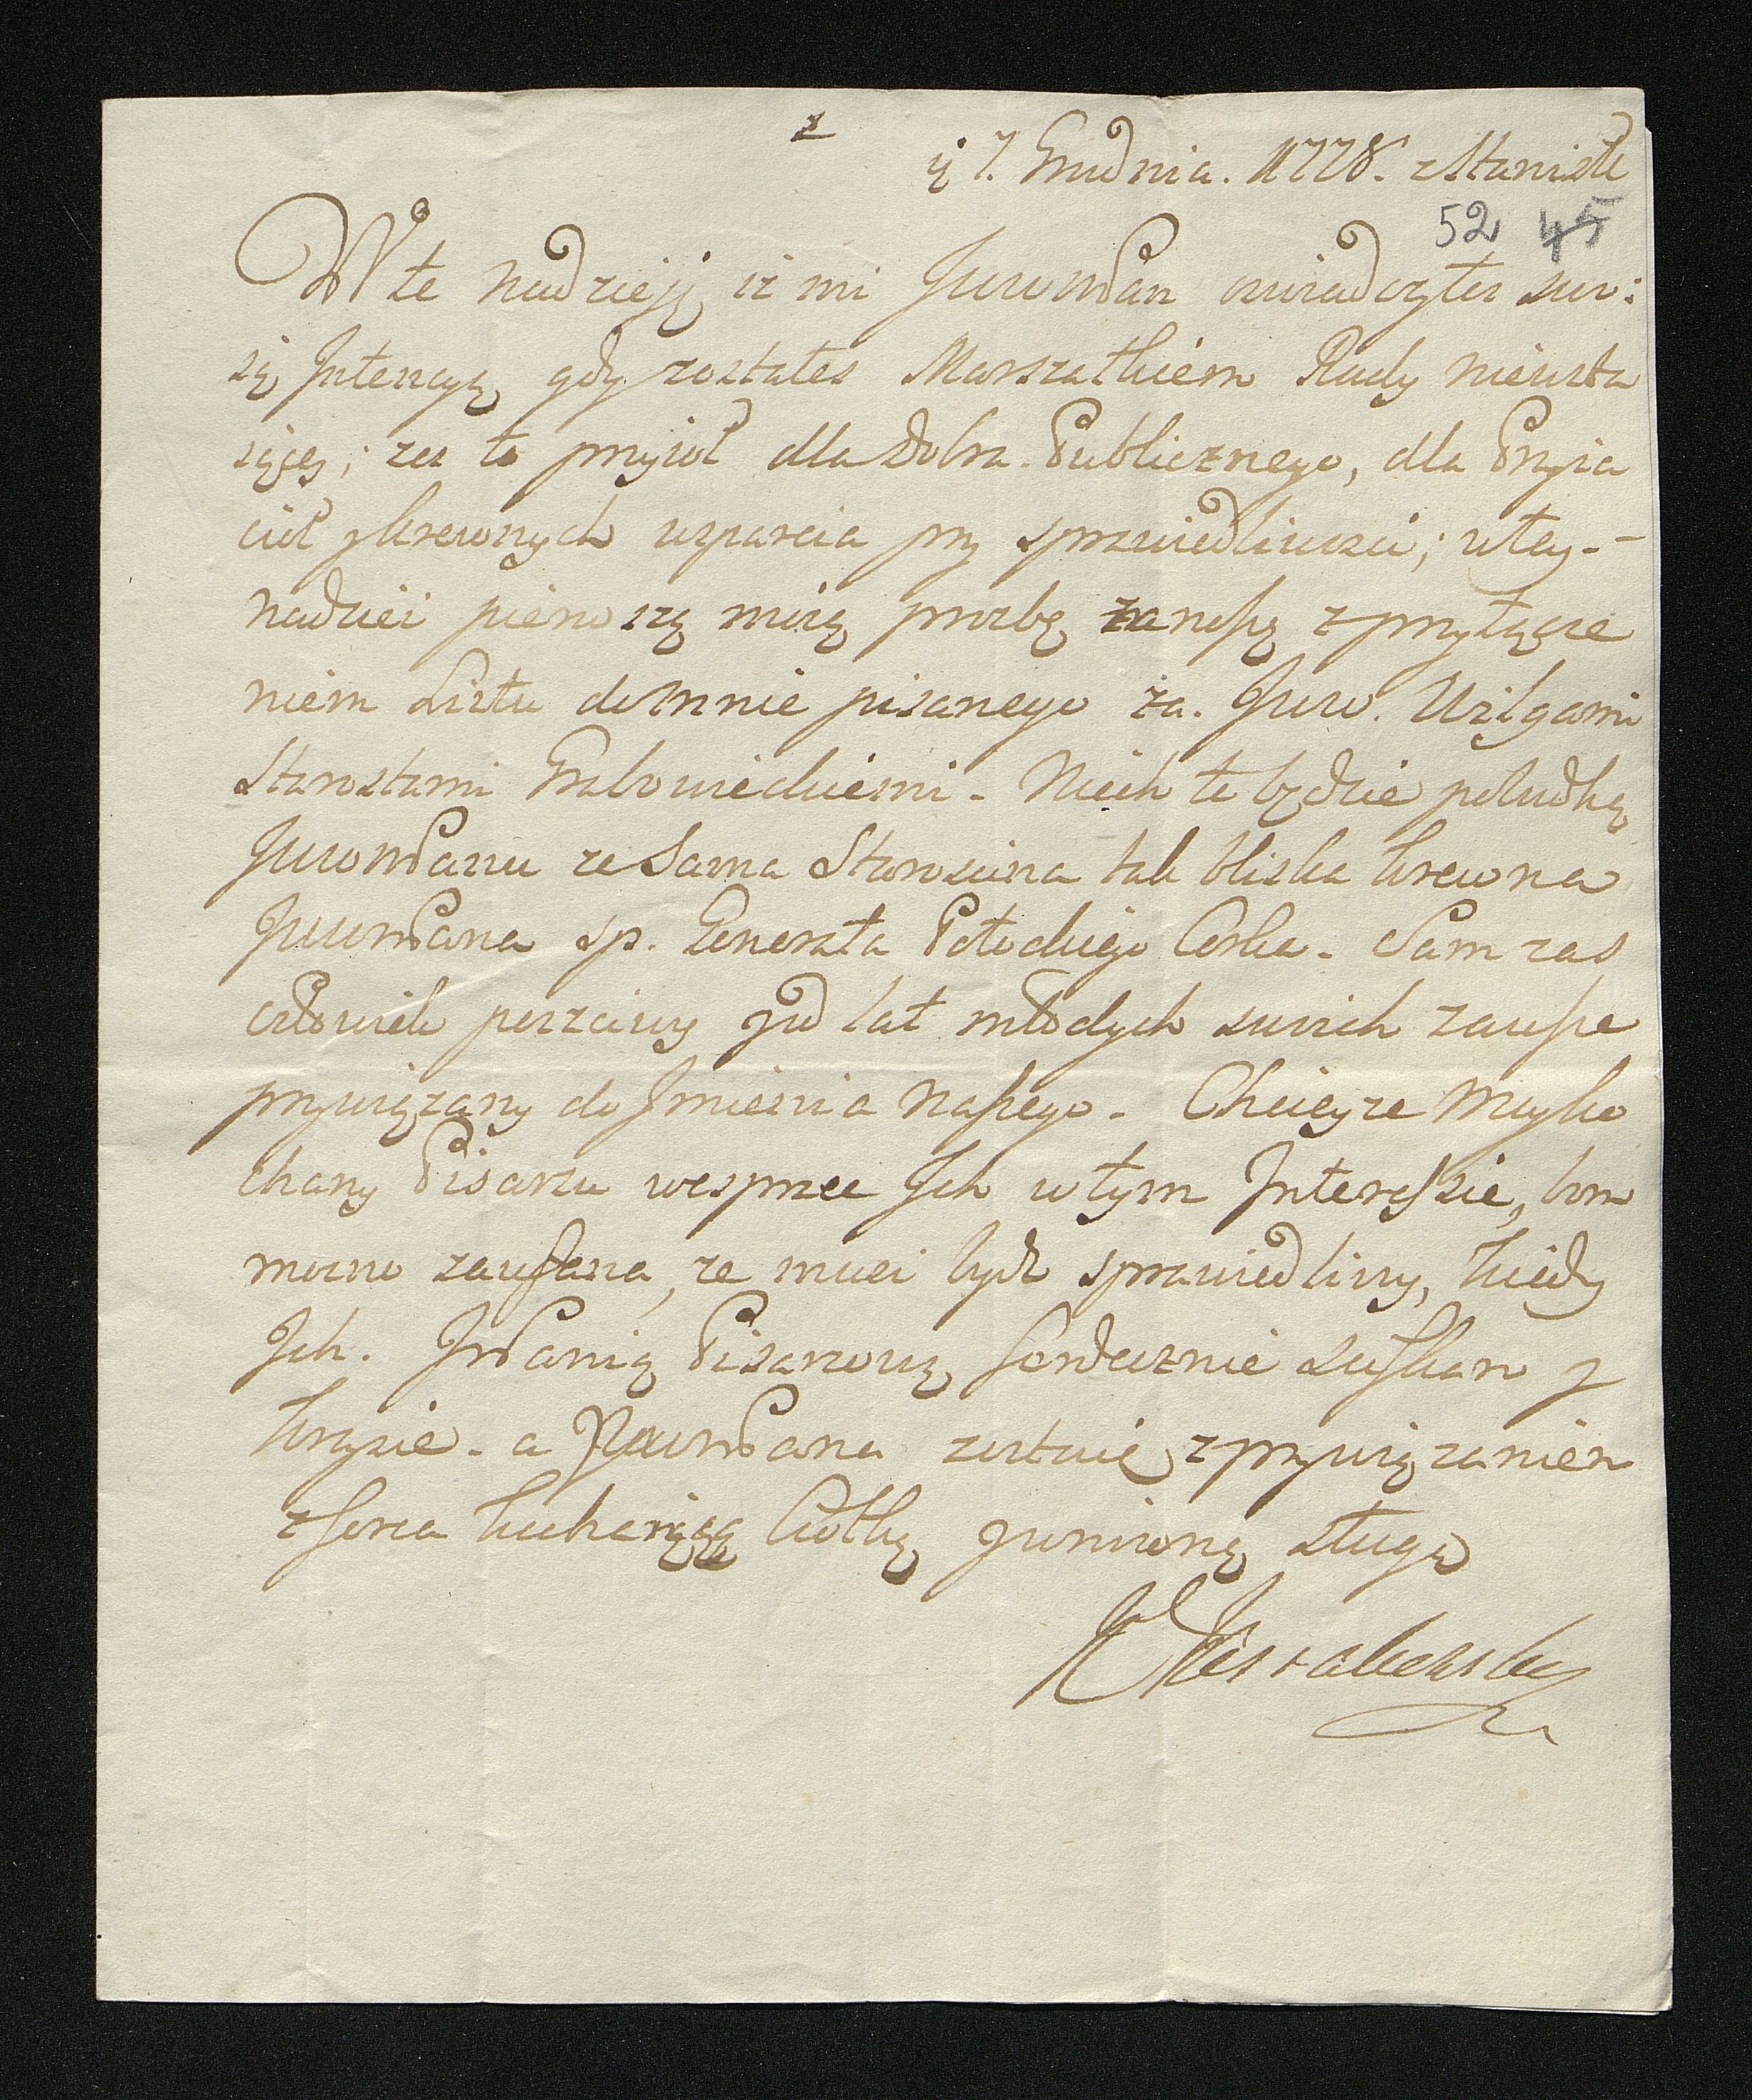 2
y 7. Grudnia. 1778. z Stanisł
52 45
W te nadzieję iż mi JwwmPan oswiadczyłes swo:
ię Jntencyę gdy zostałes Marszałkiem Rady nieusta
iącey; zes to przyioł dla dobra Publicznego, dla Przyia
cioł y krewnych wsparcia przy sprawiedliwosci; wtey-
nadziei pierwszą moią prozbę zanoszę z przyłącze
niem Listu do mnie pisanego za. Jww. Wilgami
Starostami Grabowieckiemi. Niech to będzie pobudką
JwwmPanu ze Sama Starosćina tak bliska krewna
JwwmPana sp. Generała Potockiego Corka. Sam zas
człowiek poczciwy y od lat młodych swoich zawsze
przywiązany do Jmienia naszego. Chcieyze moy ko
chany Pisarzu wesprzec Jch w tym Jnteressie, bom
mocno zaufana, ze musi bydz sprawiedliwy, kiedy
Jch. JmPanią Pisarzową serdecznie sciskam y
krysie. a JwwmPana zostaię z przywiązaniem
z serca kochaiącą Ciotką y uniżoną sługą
Kossakowska